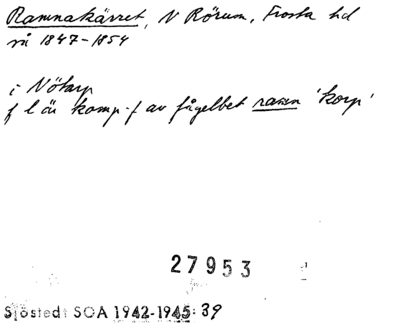 Ramnakärret, N Rörum, Frosta hd
rå 1847-1854
i Nötarp
f l är komp-f av fågelbet ramn 'korp'
27953
Sjöstedt SOA 1942-1945: 39